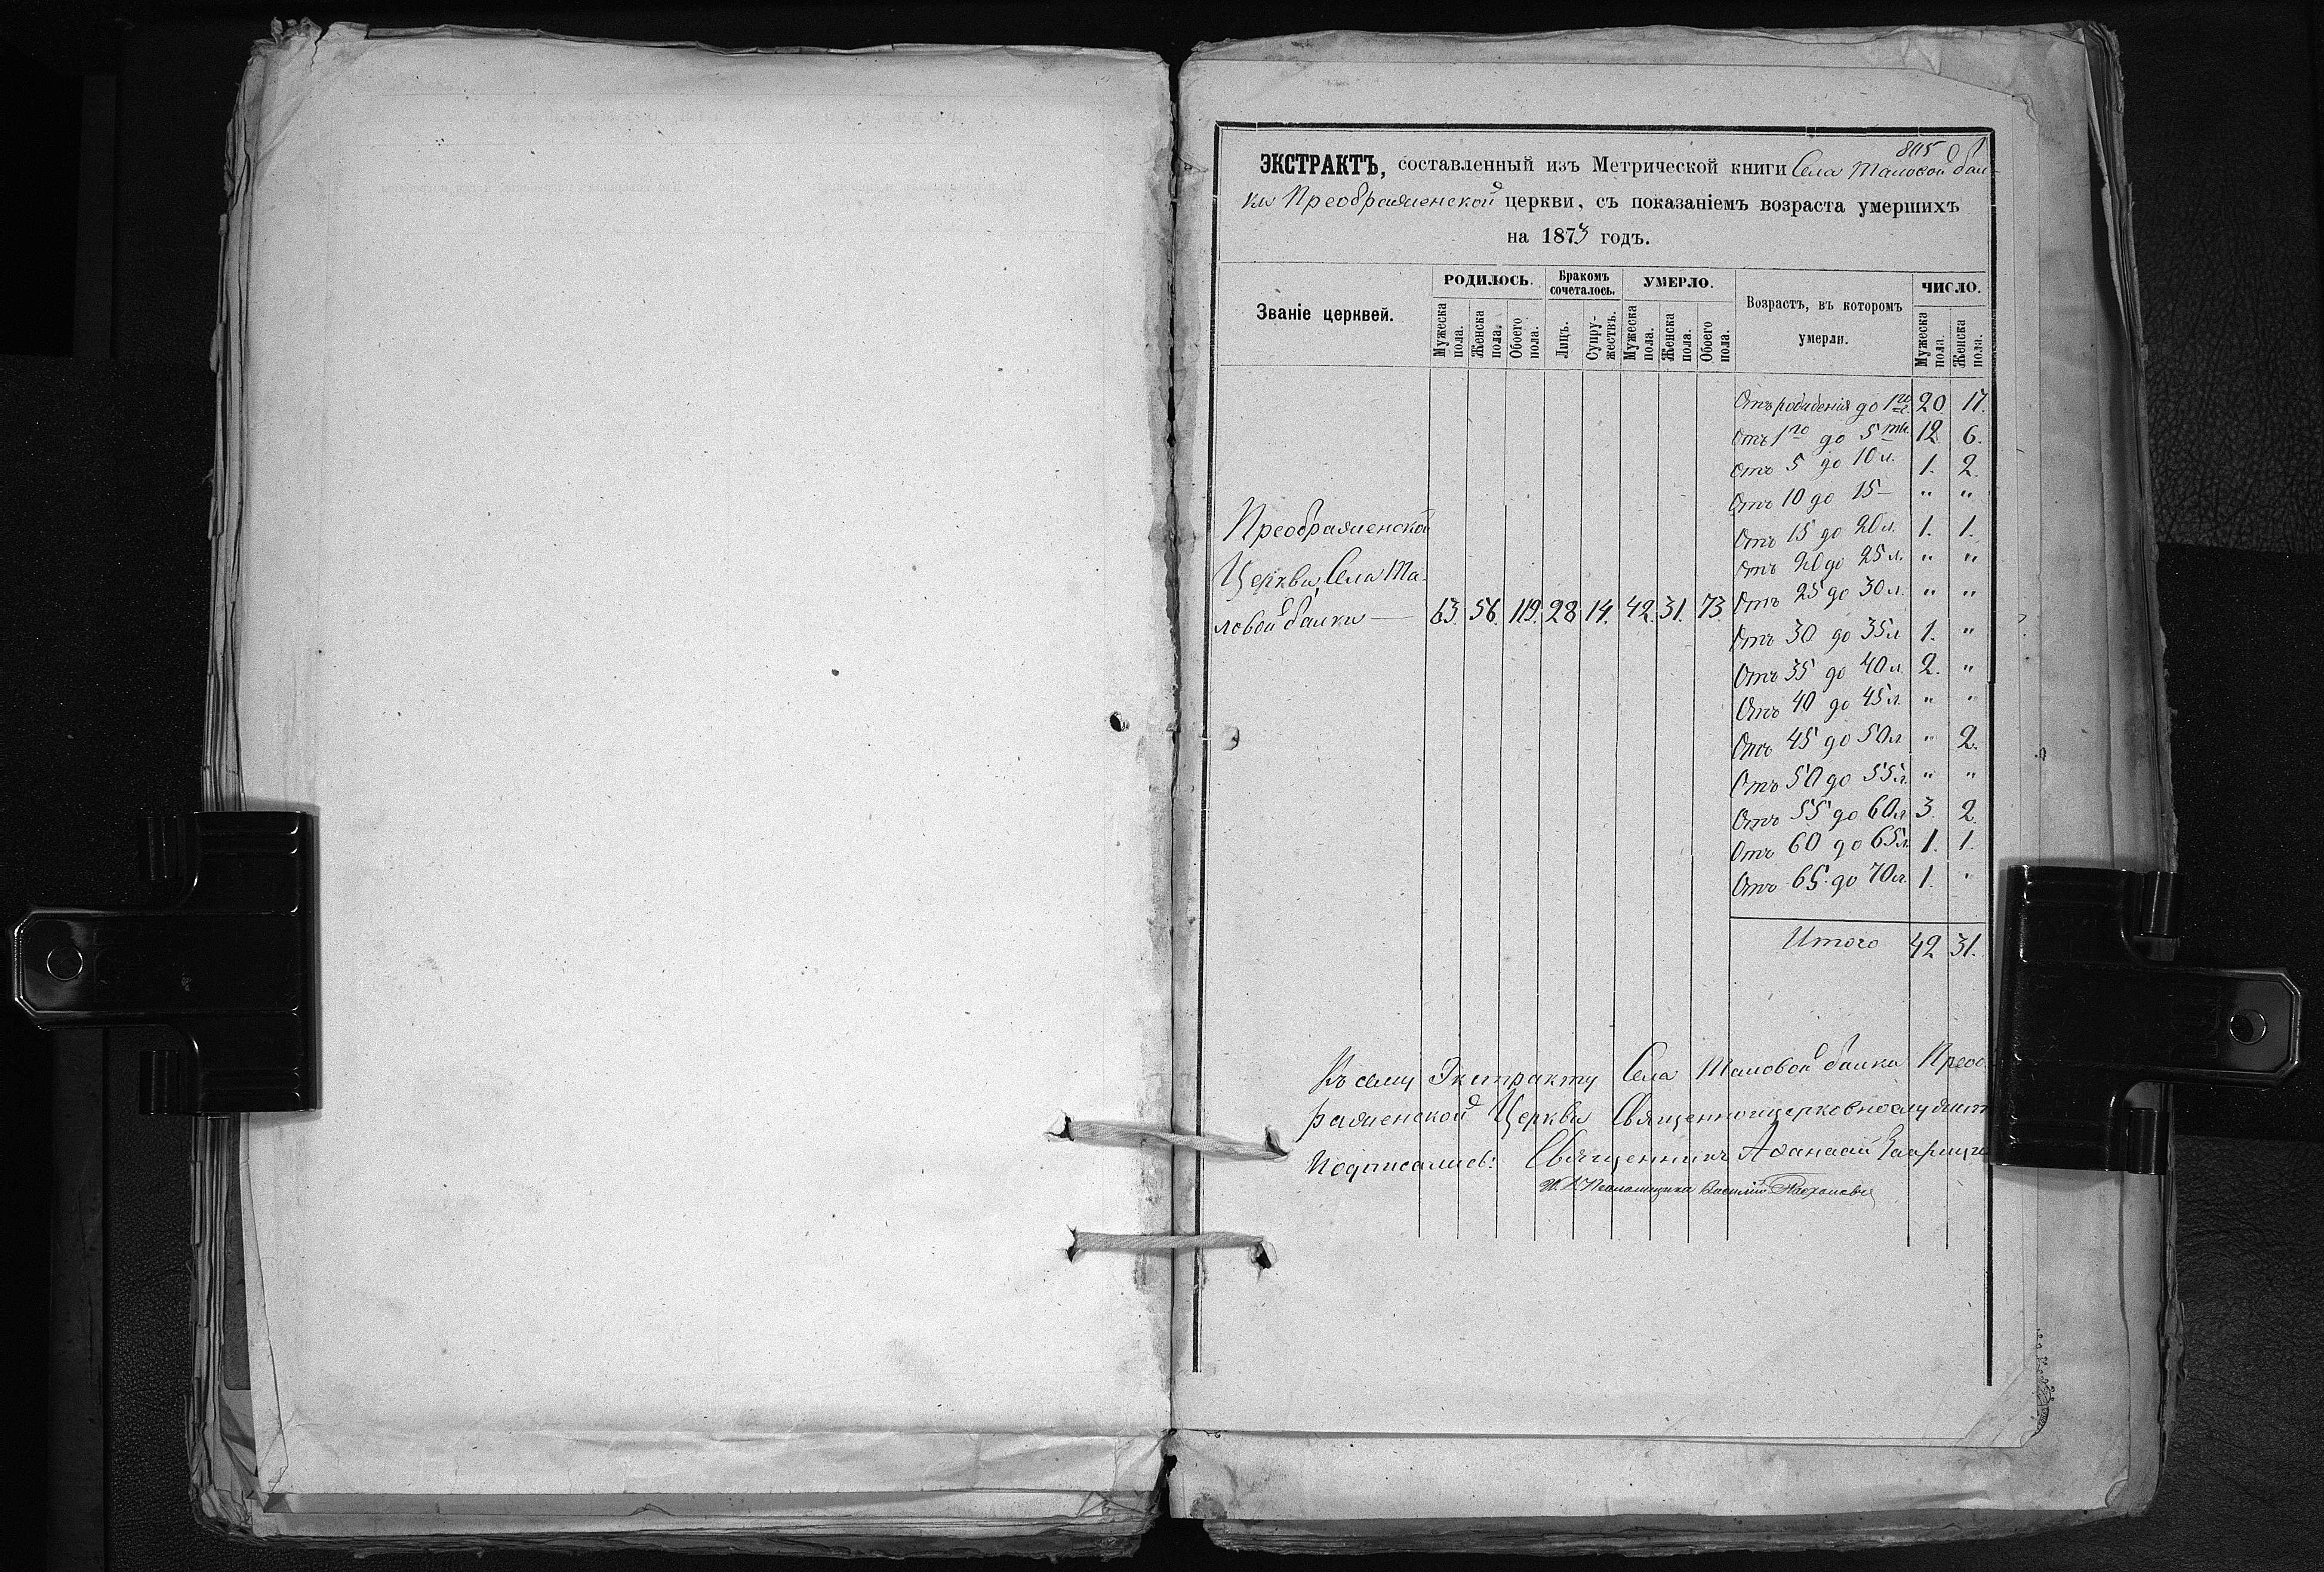 805
ЭКСТРАКТЪ, составленный изъ Метрической книги Села Таловой бал-
ки Преображенской церкви, съ показаніемъ возраста умершихъ
на 1873 годъ.
Званіе церквей. РОДИЛОСЬ. Бракомъ сочеталось. УМЕРЛО. Возрастъ, въ которомъ умерли. ЧИСЛО.
Мужеска пола. Женска пола. Обоего пола. Лицъ. Супружествъ. Мужеска пола. Женска пола. Обоего пола. Мужеска пола. Женска пола.
Отъ рожденія до 1го 20. 17.
Отъ 1го до 5ти 12 6.
Отъ 5 до 10 л. 1. 2.
Отъ 10 до 15 — " "
Преображенской
Отъ 15 до 20 л. 1. 1.
Отъ 20 до 25 л. " "
Церкви, Села Та-
Отъ 25 до 30 л. " "
ловой балки — 63. 56. 119. 28 14. 42. 31. 73
Отъ 30 до 35 л 1. "
Отъ 35 до 40 л. 2. "
Отъ 40 до 45 л. " "
Отъ 45 до 50 л " 2.
Отъ 50 до 55 л. " "
Отъ 55 до 60 л. 3. 2.
Отъ 60 до 65 л. 1. 1.
Отъ 65 до 70 л. 1. "
Итого 42 31.
Къ сему Экстракту Села Таловой балки Преоб
раженской Церкви Священноцерковнослужит
подписались: Священникъ Афанасій
Псаломщика Василій